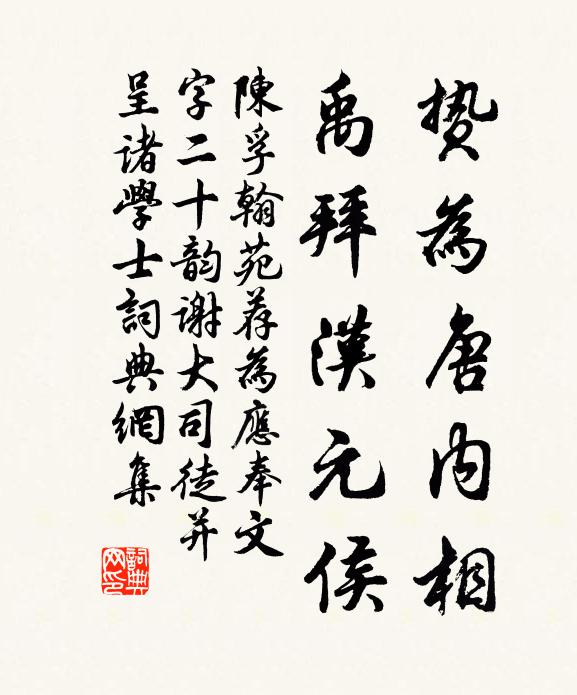 贄為唐内相
禹拜漢元侯
陳孚翰苑荐為應奉文
字二十韵謝大司徒并
呈诸學士詞典網集
詞典网印